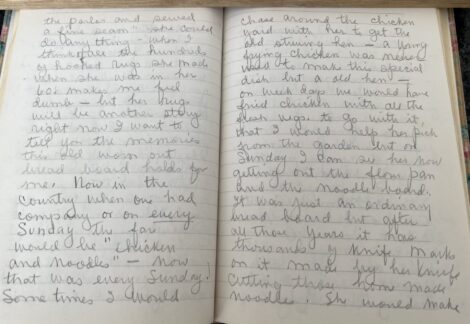 the parlor and sewed
a fine seam" she could
do any thing - when I
think of the hundreds
of hooked rugs she made
when she was in her
60s makes me feel
dumb - but her rugs
will be another story
right now I want to
tell you the memories
this old worn out
bread board holds for
me. Now in the
country when one had
company or on every
Sunday the fair
would be "chicken
and noodles" - now
that was every Sunday!
Some times I would
chase around the chicken
yard with her to get the
old stewing hen - a young
frying chicken was never
used to make this special
dish but a old hen! -
on week days we would have
fried chicken with all the
fresh vegs. to go with it,
that I would help her pick
from the garden but on
Sunday I can see her now
getting out the flour pan
and the noodle board.
It was just an ordinary
bread board but after
all those years it has
thousands of knife marks
on it made by her knife
cutting those home made
noodles. She would make